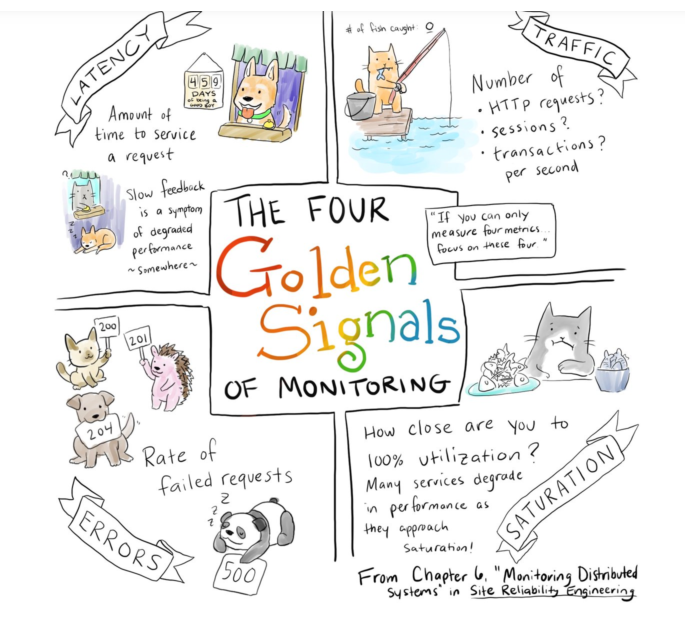 LATENCY
459
DAYS
Amount of
time to service
a request
Slow feedback
is a symptom
of degraded
performance
~somewhere~
z
z
# of fish caught: 0
TRAFFIC
Number of
• HTTP requests?
• sessions?
• transactions?
per second
"If you can only
measure four metrics...
focus on these four."
THE FOUR
Golden
Signals
OF MONITORING
200
201
204
Rate of
failed requests
ERRORS
z
z
z
500
How close are you to
100% utilization?
Many services degrade
in performance as
they approach
saturation!
SATURATION
From Chapter 6, "Monitoring Distributed
Systems" in Site Reliability Engineering